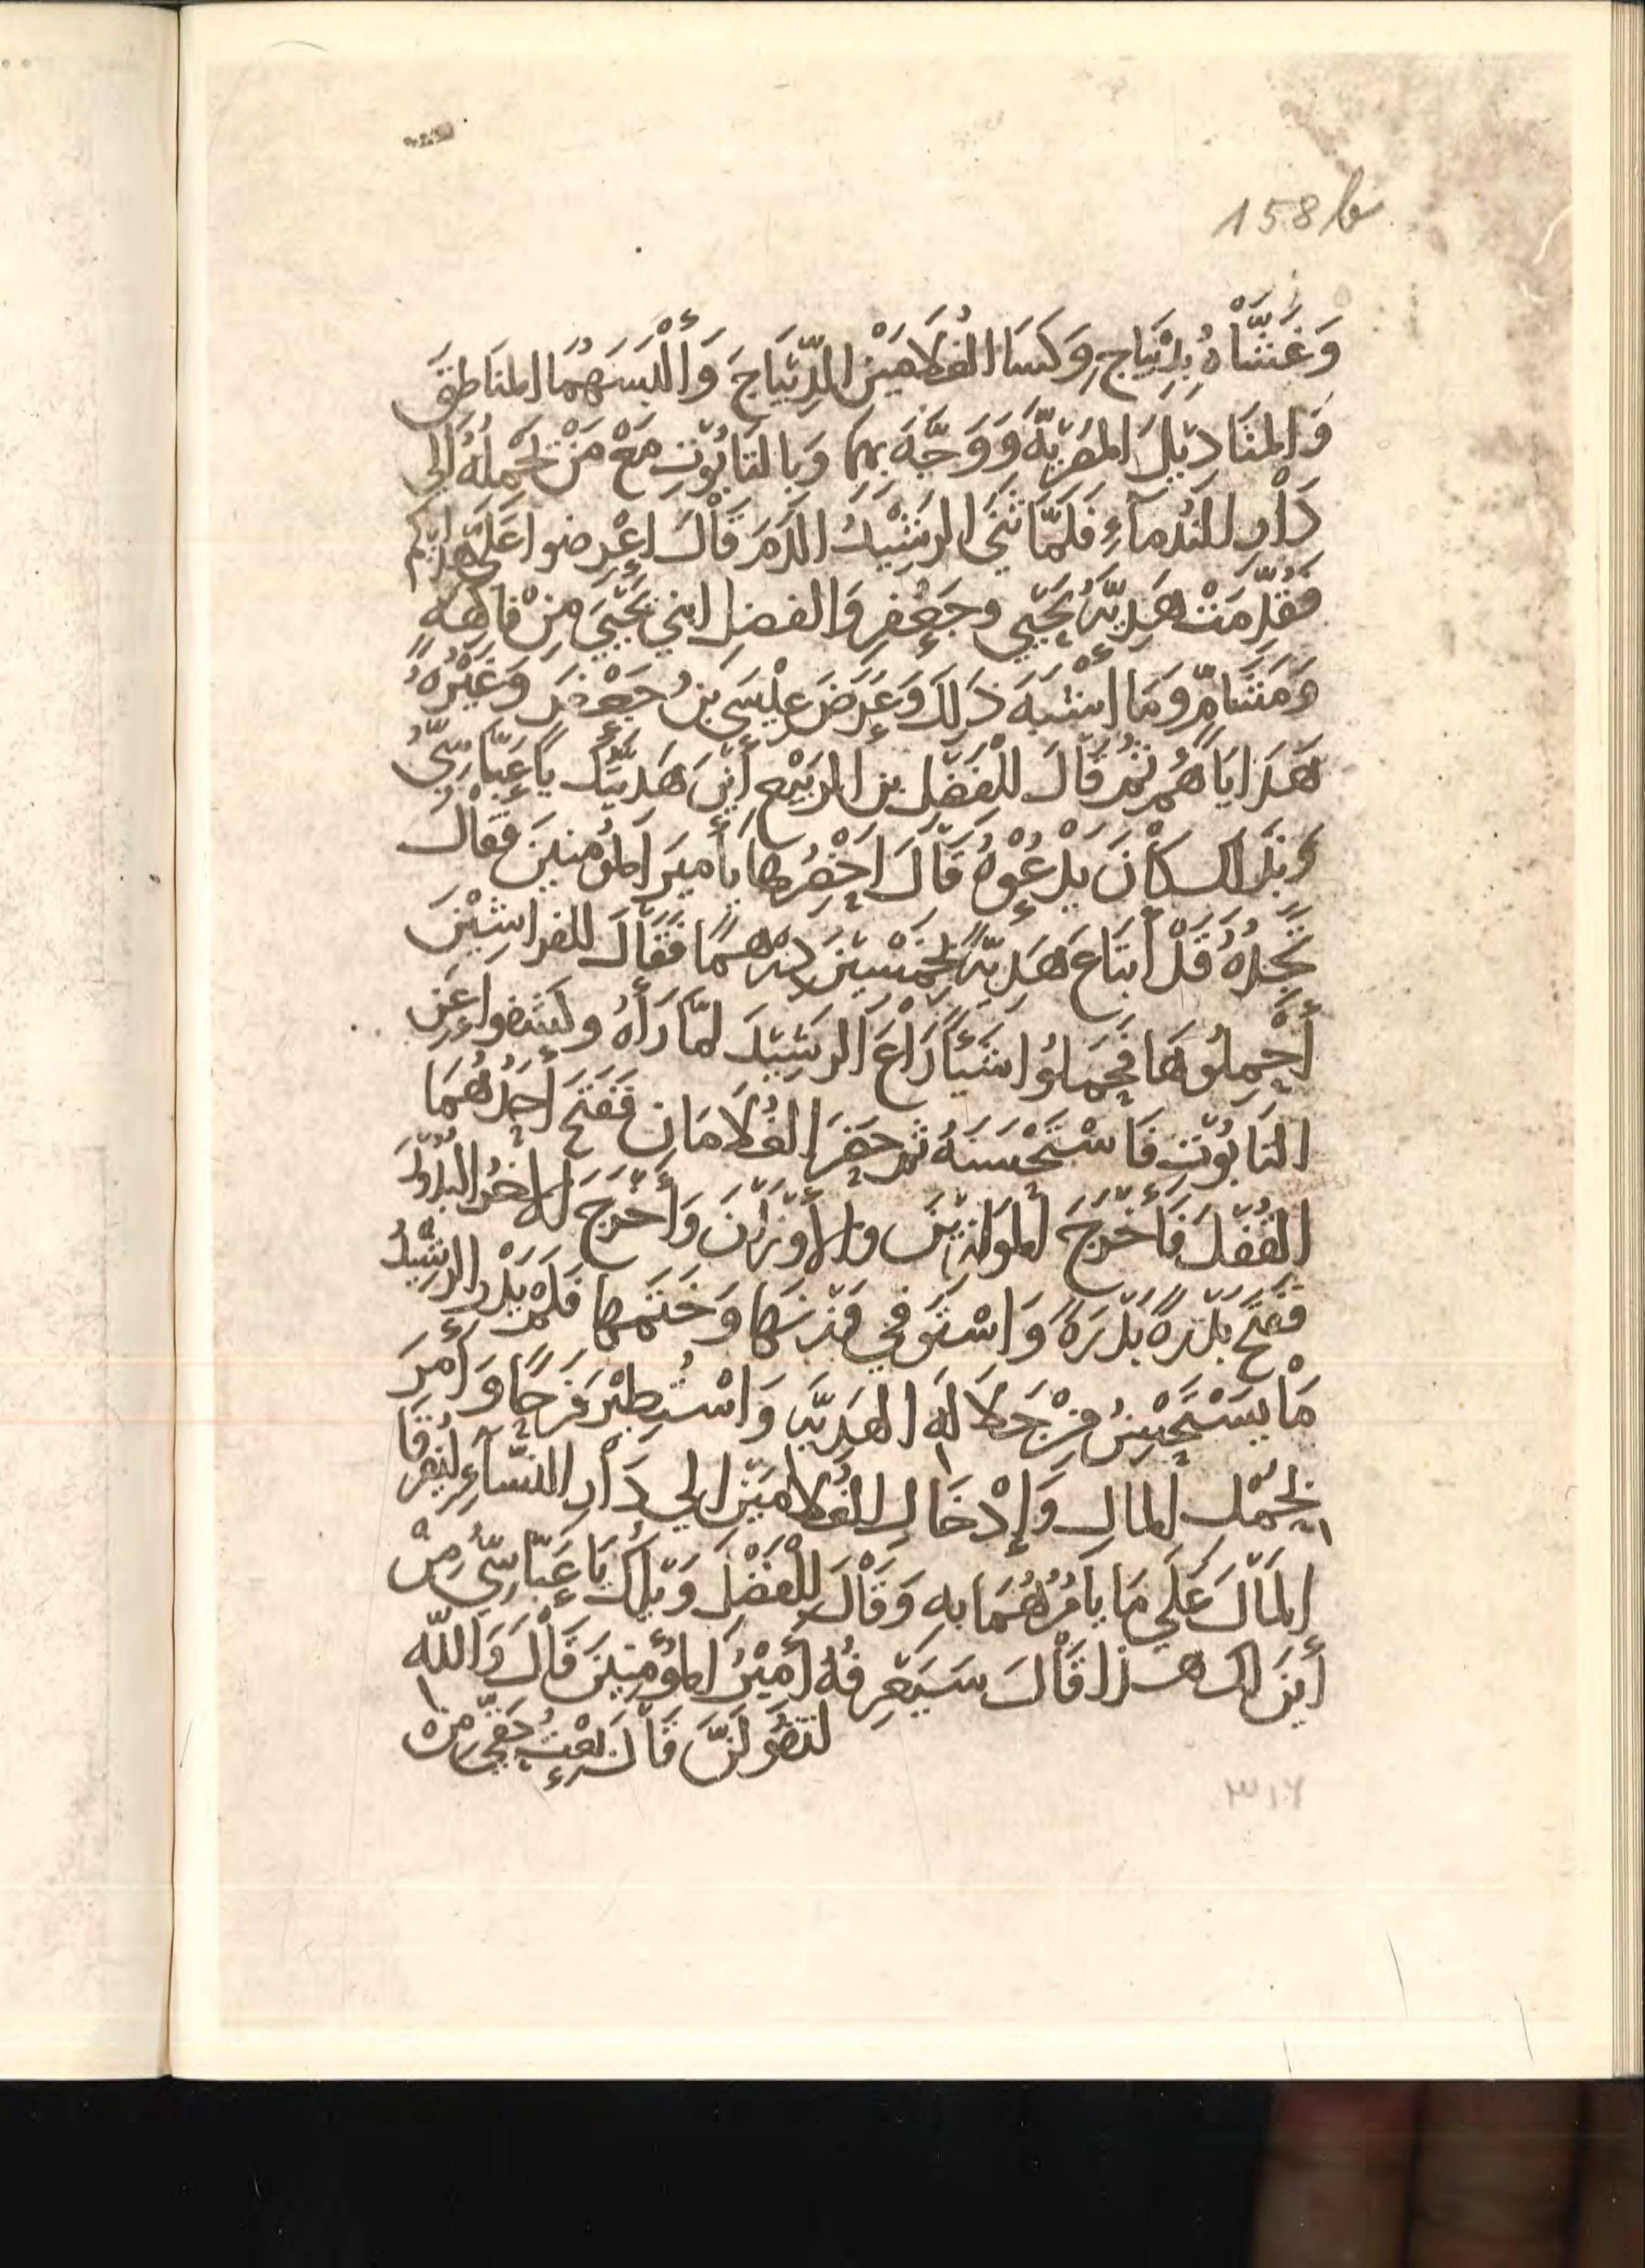 158b
وَغَشَّاْهُ بِدِيْبَاجٍ وَكَسَا الغُلَامَيْنِ الدِّيبَاجَ وَأَلْبَسَهُمَا المنَاطِقَ
وَالمنَادِيْلَ المصْريّةَ وَوَجَّهَ بِهِمَا وَبِالتَابُوْتِ مَعْ مَنْ يَحْمِلُهُ الي
دَاْرِ النُدَمآءِ فَلَمَّا ثَنَي الرشِيْدُ الدَمَ قَاْلَ اعْرِضوا عَلَيَّ هداياكم
فَقُدِّمَتْ هَدِيَّةُ يَحْيَي وجَعْفرٍ وَالفضلِ ابني يَحْيَيَ مِنْ فاكِهَةٍ
وَمَشَامٍّ وَمَا اشْبَهَ ذَلِكَ وَعَرَضَ عِيْسَي بنُ جَعْفَر وَغَيْرُهُ
هَدَايَاهُمْ ثمّ قَالَ لِلْفَضْلِ بنِ الرَبيْعِ أَيْنَ هَدِيَّتُكَ يَا عَبَّاسِيُّ
وَبذَلك كاْنَ يَدْعُوْهُ قَالَ اَحْضِرُها يأميرَ المؤمنينَ فَقاْلَ
تَجِدُهُ قَدْ أبتَاعَ هَدِيَّةً بخَمْسينَ دِرْهَماً فَقَالَ للفراشِيْنَ
أحْمِلُوهَا فَحَمَلُوا شَيْئاً رَاْعَ الرشِيْدَ لمّا رَأَهُ وكشَفوا عَنِ
التابُوْتِ فَاسْتَحْسَنَهُ ثم حضَر الغُلَامَان فَفَتَحَ أحَدُهُمَا
القُفْلَ فَأَخْرَجَ الموَازِيْنَ والأَوْزَانَ وَأَخْرَجَ الاخَرُ البُدُوْرَ
فَفَتَحَ بَدْرَةً بَدْرَةً وَاسْتَوْفي وَزْنَهَا وَخَتَمَها فَلَمْ يَدْرِ الرشِيْدُ
مَاْ يَسْتَحْسِنُ مِنْ جَلَالَةِ الهَدِيَّة وَاسْتُطِيْرَ فَرَحًا وَأَمَرَ
بِحَمْل المالِ وَإِدْخَالِ الغُلَامَيْنِ الي دَاْرِ النسَآءِ لِيُفرقَا
المَاْلَ عَلَي مَا يأمُرُهُمَا بهِ وَقَاْلَ لِلْفَضْلِ وَيْلَكَ يَا عَبَّاسِيُّ مِنْ
أَينَ لك هذا قَاْلَ سَيَعْرِفُهُ أمِيْرُ المُؤْمِنِينَ قَاْلَ وَاللّه
لتقُوْلَنَّ قَاْلَ بعْتُ حَقِّي مِنْ
٣١٦